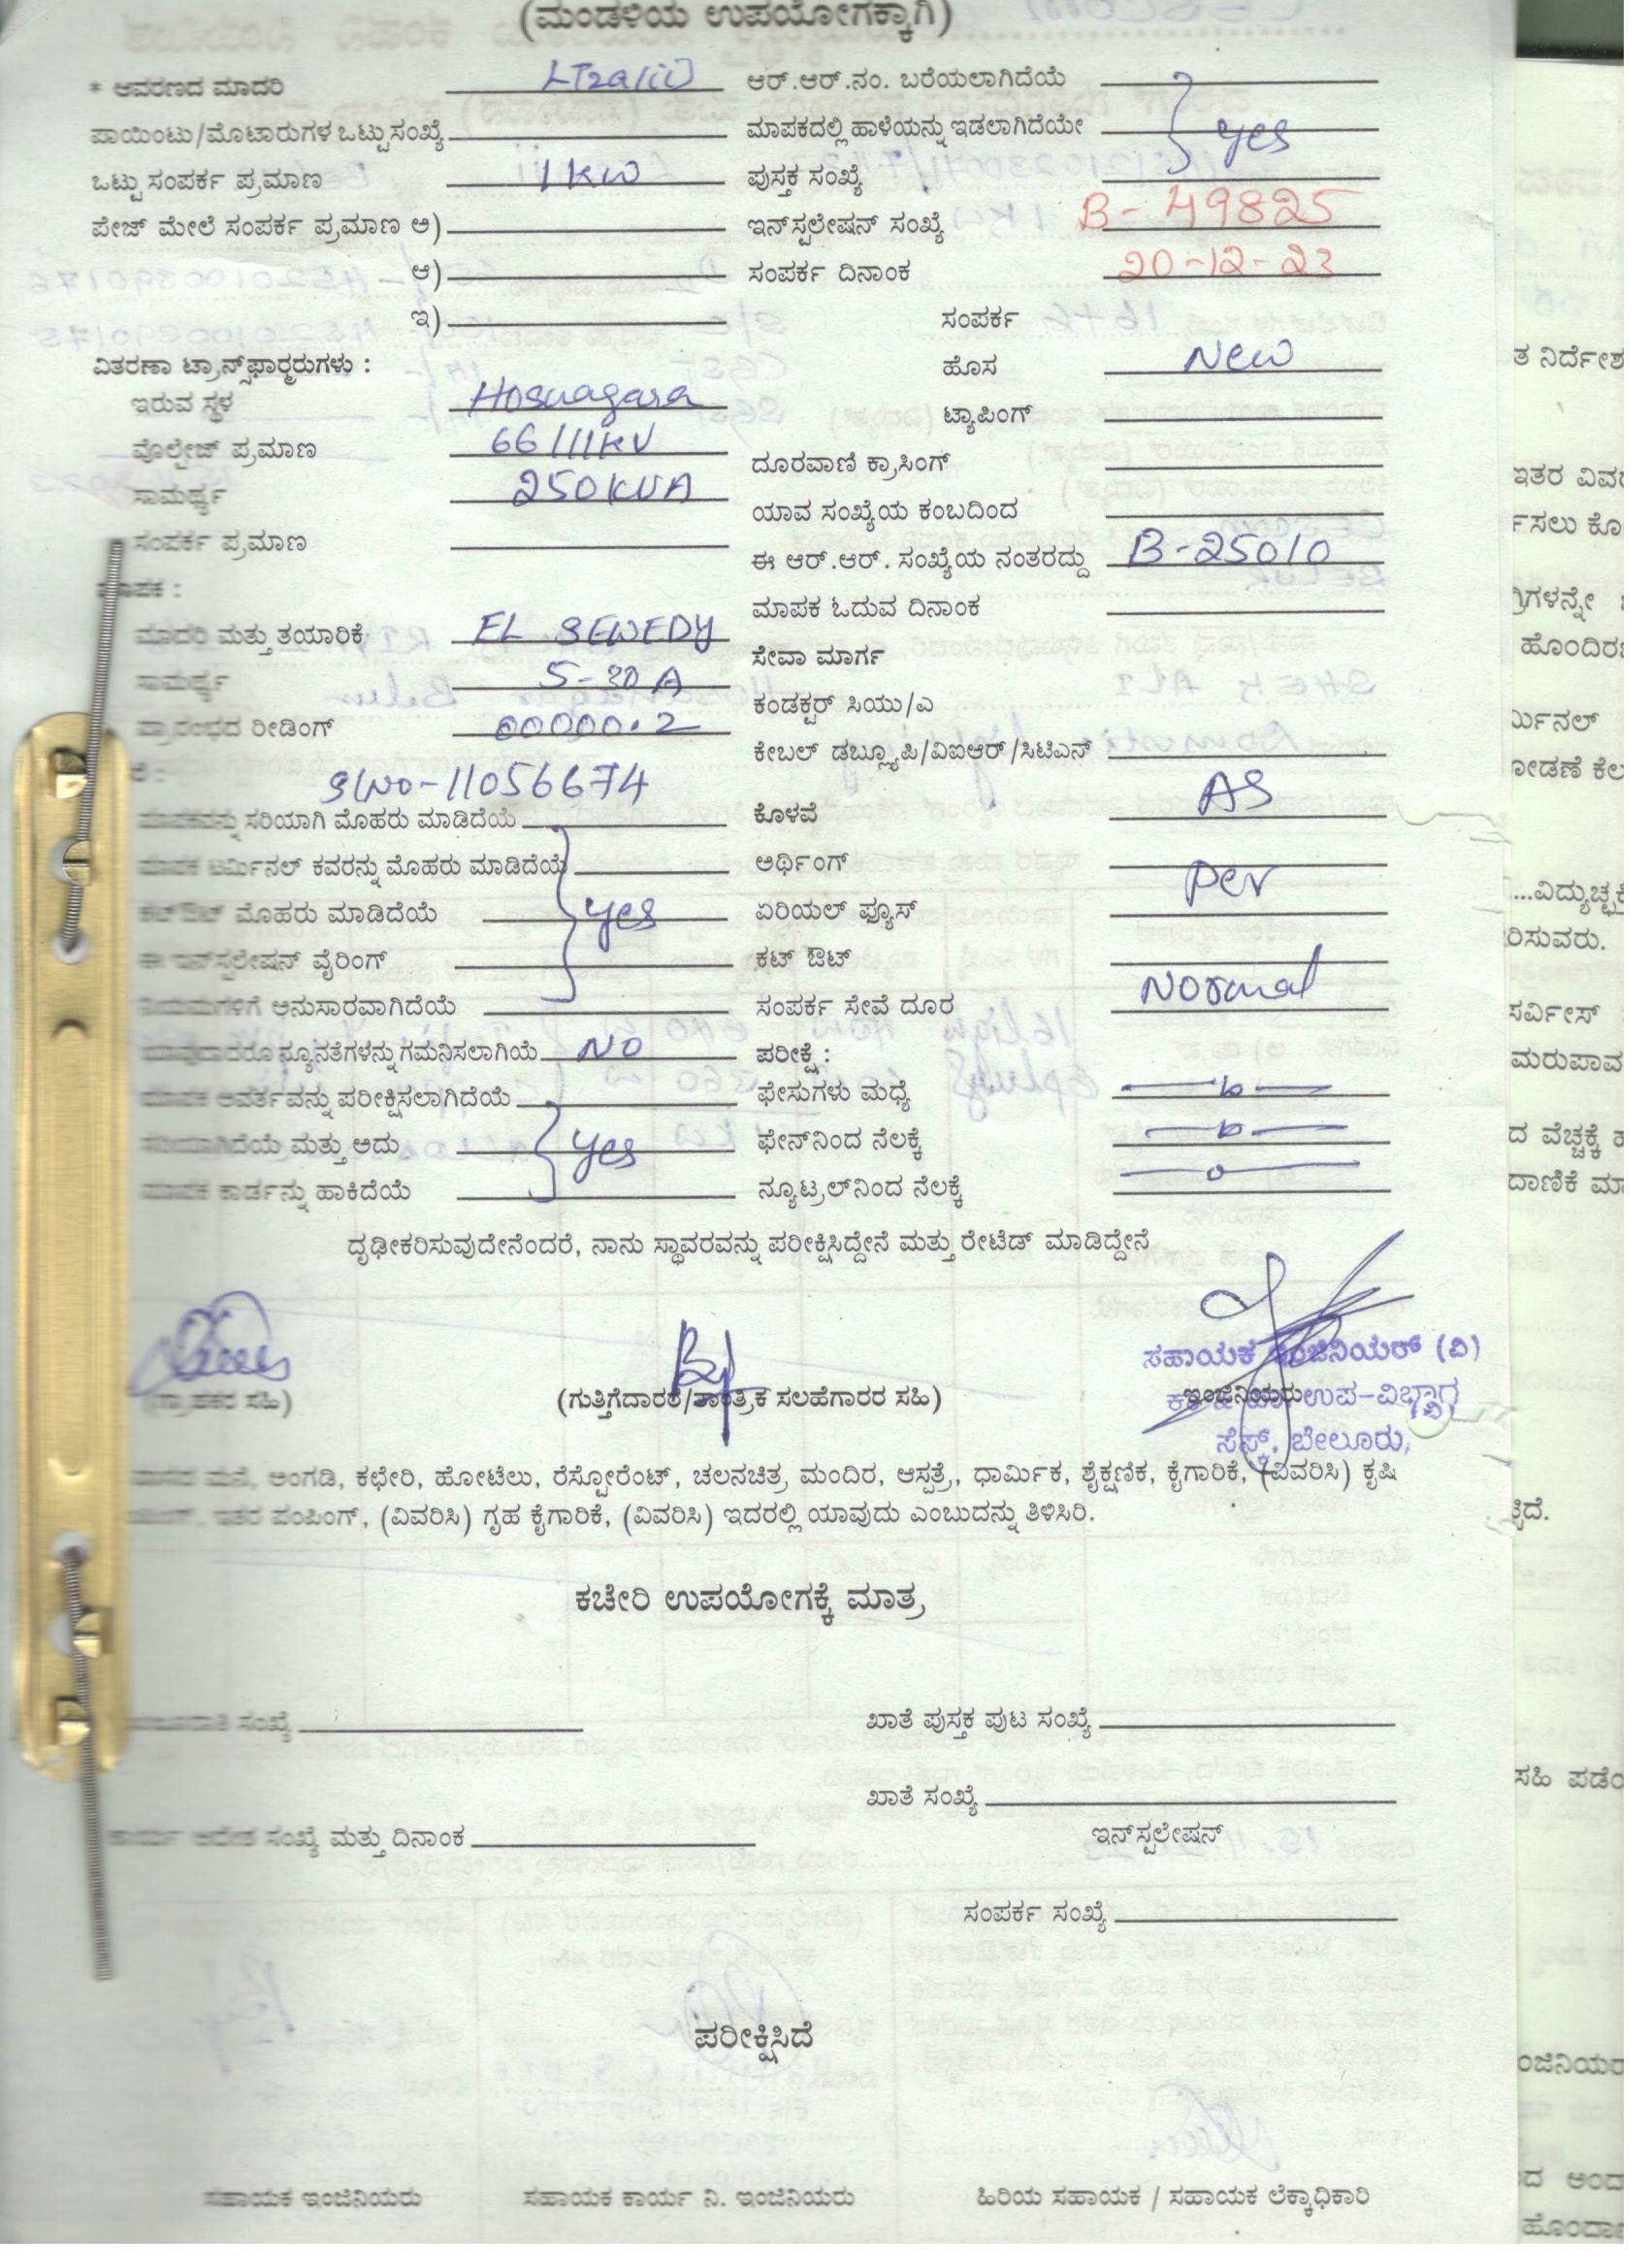 (ಮಂಡಳಿಯ ಉಪಯೋಗಕ್ಕಾಗಿ)
* ಆವರಣದ ಮಾದರಿ LT2a(ii) ಆರ್.ಆರ್.ನಂ. ಬರೆಯಲಾಗಿದೆಯೆ
ಪಾಯಿಂಟು/ಮೊಟಾರುಗಳ ಒಟ್ಟು ಸಂಖ್ಯೆ ಮಾಪಕದಲ್ಲಿ ಹಾಳೆಯನ್ನು ಇಡಲಾಗಿದೆಯೇ yes
ಒಟ್ಟು ಸಂಪರ್ಕ ಪ್ರಮಾಣ 1 KW ಪುಸ್ತಕ ಸಂಖ್ಯೆ
ಪೇಜ್ ಮೇಲೆ ಸಂಪರ್ಕ ಪ್ರಮಾಣ ಅ) ಇನ್‌ಸ್ಟಲೇಷನ್ ಸಂಖ್ಯೆ B-49825
ಆ) ಸಂಪರ್ಕ ದಿನಾಂಕ 20-12-23
ಇ) ಸಂಪರ್ಕ
ವಿತರಣಾ ಟ್ರಾನ್ಸ್‌ಫಾರ್ಮರುಗಳು : ಹೊಸ New
ಇರುವ ಸ್ಥಳ Hosnagara ಟ್ಯಾಪಿಂಗ್
ವೊಲ್ಟೇಜ್ ಪ್ರಮಾಣ 66/11KV ದೂರವಾಣಿ ಕ್ರಾಸಿಂಗ್
ಸಾಮರ್ಥ್ಯ 250KVA ಯಾವ ಸಂಖ್ಯೆಯ ಕಂಬದಿಂದ
ಸಂಪರ್ಕ ಪ್ರಮಾಣ ಈ ಆರ್.ಆರ್. ಸಂಖ್ಯೆಯ ನಂತರದ್ದು B-25010
ಮಾಪಕ : ಮಾಪಕ ಓದುವ ದಿನಾಂಕ
ಮಾದರಿ ಮತ್ತು ತಯಾರಿಕೆ EL SEWEDY ಸೇವಾ ಮಾರ್ಗ
ಸಾಮರ್ಥ್ಯ 5-20 A ಕಂಡಕ್ಟರ್ ಸಿಯು/ಎ
ಪ್ರಾರಂಭದ ರೀಡಿಂಗ್ 00000.2 ಕೇಬಲ್ ಡಬ್ಲ್ಯೂಪಿ/ವಿಐಆರ್/ಸಿಟಿಎಸ್
Sl No-11056674
ಮಾಪಕವನ್ನು ಸರಿಯಾಗಿ ಮೊಹರು ಮಾಡಿದೆಯೆ ಕೊಳವೆ AS
ಮಾಪಕ ಟರ್ಮಿನಲ್ ಕವರನ್ನು ಮೊಹರು ಮಾಡಿದೆಯೆ ಅರ್ಥಿಂಗ್ Per
ಕಟ್‌ಔಟ್ ಮೊಹರು ಮಾಡಿದೆಯೆ yes ಏರಿಯಲ್ ಫ್ಯೂಸ್
ಈ ಇನ್‌ಸ್ಟಲೇಷನ್ ವೈರಿಂಗ್ ಕಟ್ ಔಟ್
ನಿಯಮಗಳಿಗೆ ಅನುಸಾರವಾಗಿದೆಯೆ ಸಂಪರ್ಕ ಸೇವೆ ದೂರ Normal
ಯಾವುದಾದರೂ ನ್ಯೂನತೆಗಳನ್ನು ಗಮನಿಸಲಾಗಿಯೆ NO ಪರೀಕ್ಷೆ :
ಮಾಪಕ ಆವರ್ತವನ್ನು ಪರೀಕ್ಷಿಸಲಾಗಿದೆಯೆ ಫೇಸುಗಳು ಮಧ್ಯೆ
ಸರಿಯಾಗಿದೆಯೆ ಮತ್ತು ಅದು yes ಫೇಸ್‌ನಿಂದ ನೆಲಕ್ಕೆ
ಮಾಪಕ ಕಾರ್ಡನ್ನು ಹಾಕಿದೆಯೆ ನ್ಯೂಟ್ರಲ್‌ನಿಂದ ನೆಲಕ್ಕೆ
ದೃಢೀಕರಿಸುವುದೇನೆಂದರೆ, ನಾನು ಸ್ಥಾವರವನ್ನು ಪರೀಕ್ಷಿಸಿದ್ದೇನೆ ಮತ್ತು ರೇಟೆಡ್ ಮಾಡಿದ್ದೇನೆ
ಸಹಾಯಕ ಇಂಜಿನಿಯರ್ (ವಿ)
(ಗ್ರಾಹಕರ ಸಹಿ) (ಗುತ್ತಿಗೆದಾರರ/ತಾಂತ್ರಿಕ ಸಲಹೆಗಾರರ ಸಹಿ) ಇಂಜಿನಿಯರು
ಉಪ-ವಿಭಾಗ
ಸೆಸ್ಕ್, ಬೇಲೂರು,
ಮನೆ, ಅಂಗಡಿ, ಕಛೇರಿ, ಹೋಟೆಲು, ರೆಸ್ಟೋರೆಂಟ್, ಚಲನಚಿತ್ರ ಮಂದಿರ, ಆಸ್ಪತ್ರೆ, ಧಾರ್ಮಿಕ, ಶೈಕ್ಷಣಿಕ, ಕೈಗಾರಿಕೆ, (ವಿವರಿಸಿ) ಕೃಷಿ
ಇತರ ಪಂಪಿಂಗ್, (ವಿವರಿಸಿ) ಗೃಹ ಕೈಗಾರಿಕೆ, (ವಿವರಿಸಿ) ಇದರಲ್ಲಿ ಯಾವುದು ಎಂಬುದನ್ನು ತಿಳಿಸಿರಿ.
ಕಚೇರಿ ಉಪಯೋಗಕ್ಕೆ ಮಾತ್ರ
ಸಂಖ್ಯೆ ಖಾತೆ ಪುಸ್ತಕ ಪುಟ ಸಂಖ್ಯೆ
ಖಾತೆ ಸಂಖ್ಯೆ
ಕಾರ್ಯ ಆದೇಶ ಸಂಖ್ಯೆ ಮತ್ತು ದಿನಾಂಕ ಇನ್‌ಸ್ಟಲೇಷನ್
ಸಂಪರ್ಕ ಸಂಖ್ಯೆ
ಪರೀಕ್ಷಿಸಿದೆ
ಸಹಾಯಕ ಇಂಜಿನಿಯರು ಸಹಾಯಕ ಕಾರ್ಯ ನಿ. ಇಂಜಿನಿಯರು ಹಿರಿಯ ಸಹಾಯಕ / ಸಹಾಯಕ ಲೆಕ್ಕಾಧಿಕಾರಿ